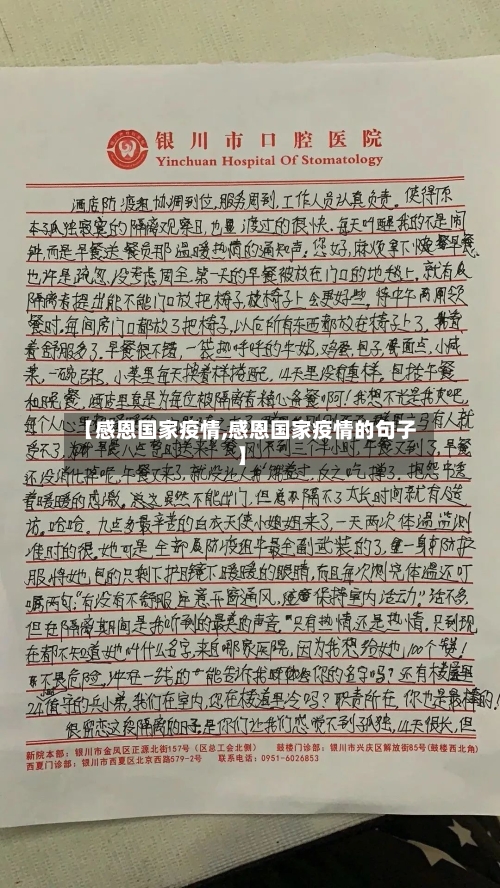 银川市口腔医院
Yinchuan Hospital Of Stomatology
酒店防疫组协调到位,服务周到,工作人员认真负责。使得原
本孤独寂寞的隔离观察日,也显渡过的很快。每天叫醒我的不是闹
钟,而是早餐送餐员那温暖热情的通知声:您好,麻烦拿下早餐。
也许是疏忽,没考虑周全。第一天的早餐被放在门口的地毯上。就有
隔离者提出能不能门口放把椅子,放椅子上会更好些。待中午再用
餐时,每间房门口都放了把椅子,以后所有东西都放在椅子上了。
着舒服多了。早餐很不错,一袋热呼呼的牛奶,鸡蛋,包子,小咸
菜,小菜里每天换着样搭配,14天里没有重样。包括午餐
和晚餐,酒店里真是为每位被隔离者精心备餐啊!我想不光是我吧,
每个人心里
【感恩国家疫情,感恩国家疫情的句子
】
受不了。为啥早餐八点发的送来午餐间隔不到三个半小时,午餐又到了,早餐
还没消化掉呢,午餐又来了,就没让人
着暖暖的感激。虽然不能出门,但离不隔不了太长时间就有人造
访。哈哈。九点多最辛苦的白衣天使小姐姐来了,一天两次体温监测
准时的很。她可是全部防疫组中最全副武装的了,一身防护
服将她包的只剩下护目镜下暖暖的眼睛,而且每次测完体温还叮
嘱两句:“有没有不舒服,注意开窗通风,适度保持室内活动”话不多,
但在隔离期间是我听到的最美的声音。只有热情还是热情。只到现
在都不知道她叫什么名字,来自哪家医院,因为我想给她100个赞!
不畏危险,冲在一线的“能告诉我你的名字吗?还有楼层里
24值守的兵小弟,我们在室内,您在楼道里冷吗?职责所在,你也是最棒的!
很留恋这段隔离的日子,是你们让我们感觉不到孤独,14天很长,但
新院本部：银川市金凤区正源北街157号（区总工会北侧） 鼓楼门诊部：银川市兴庆区解放街85号(鼓楼西北角)
西夏门诊部：银川市西夏区北京西路579-2号 联系电话：0951-6026853